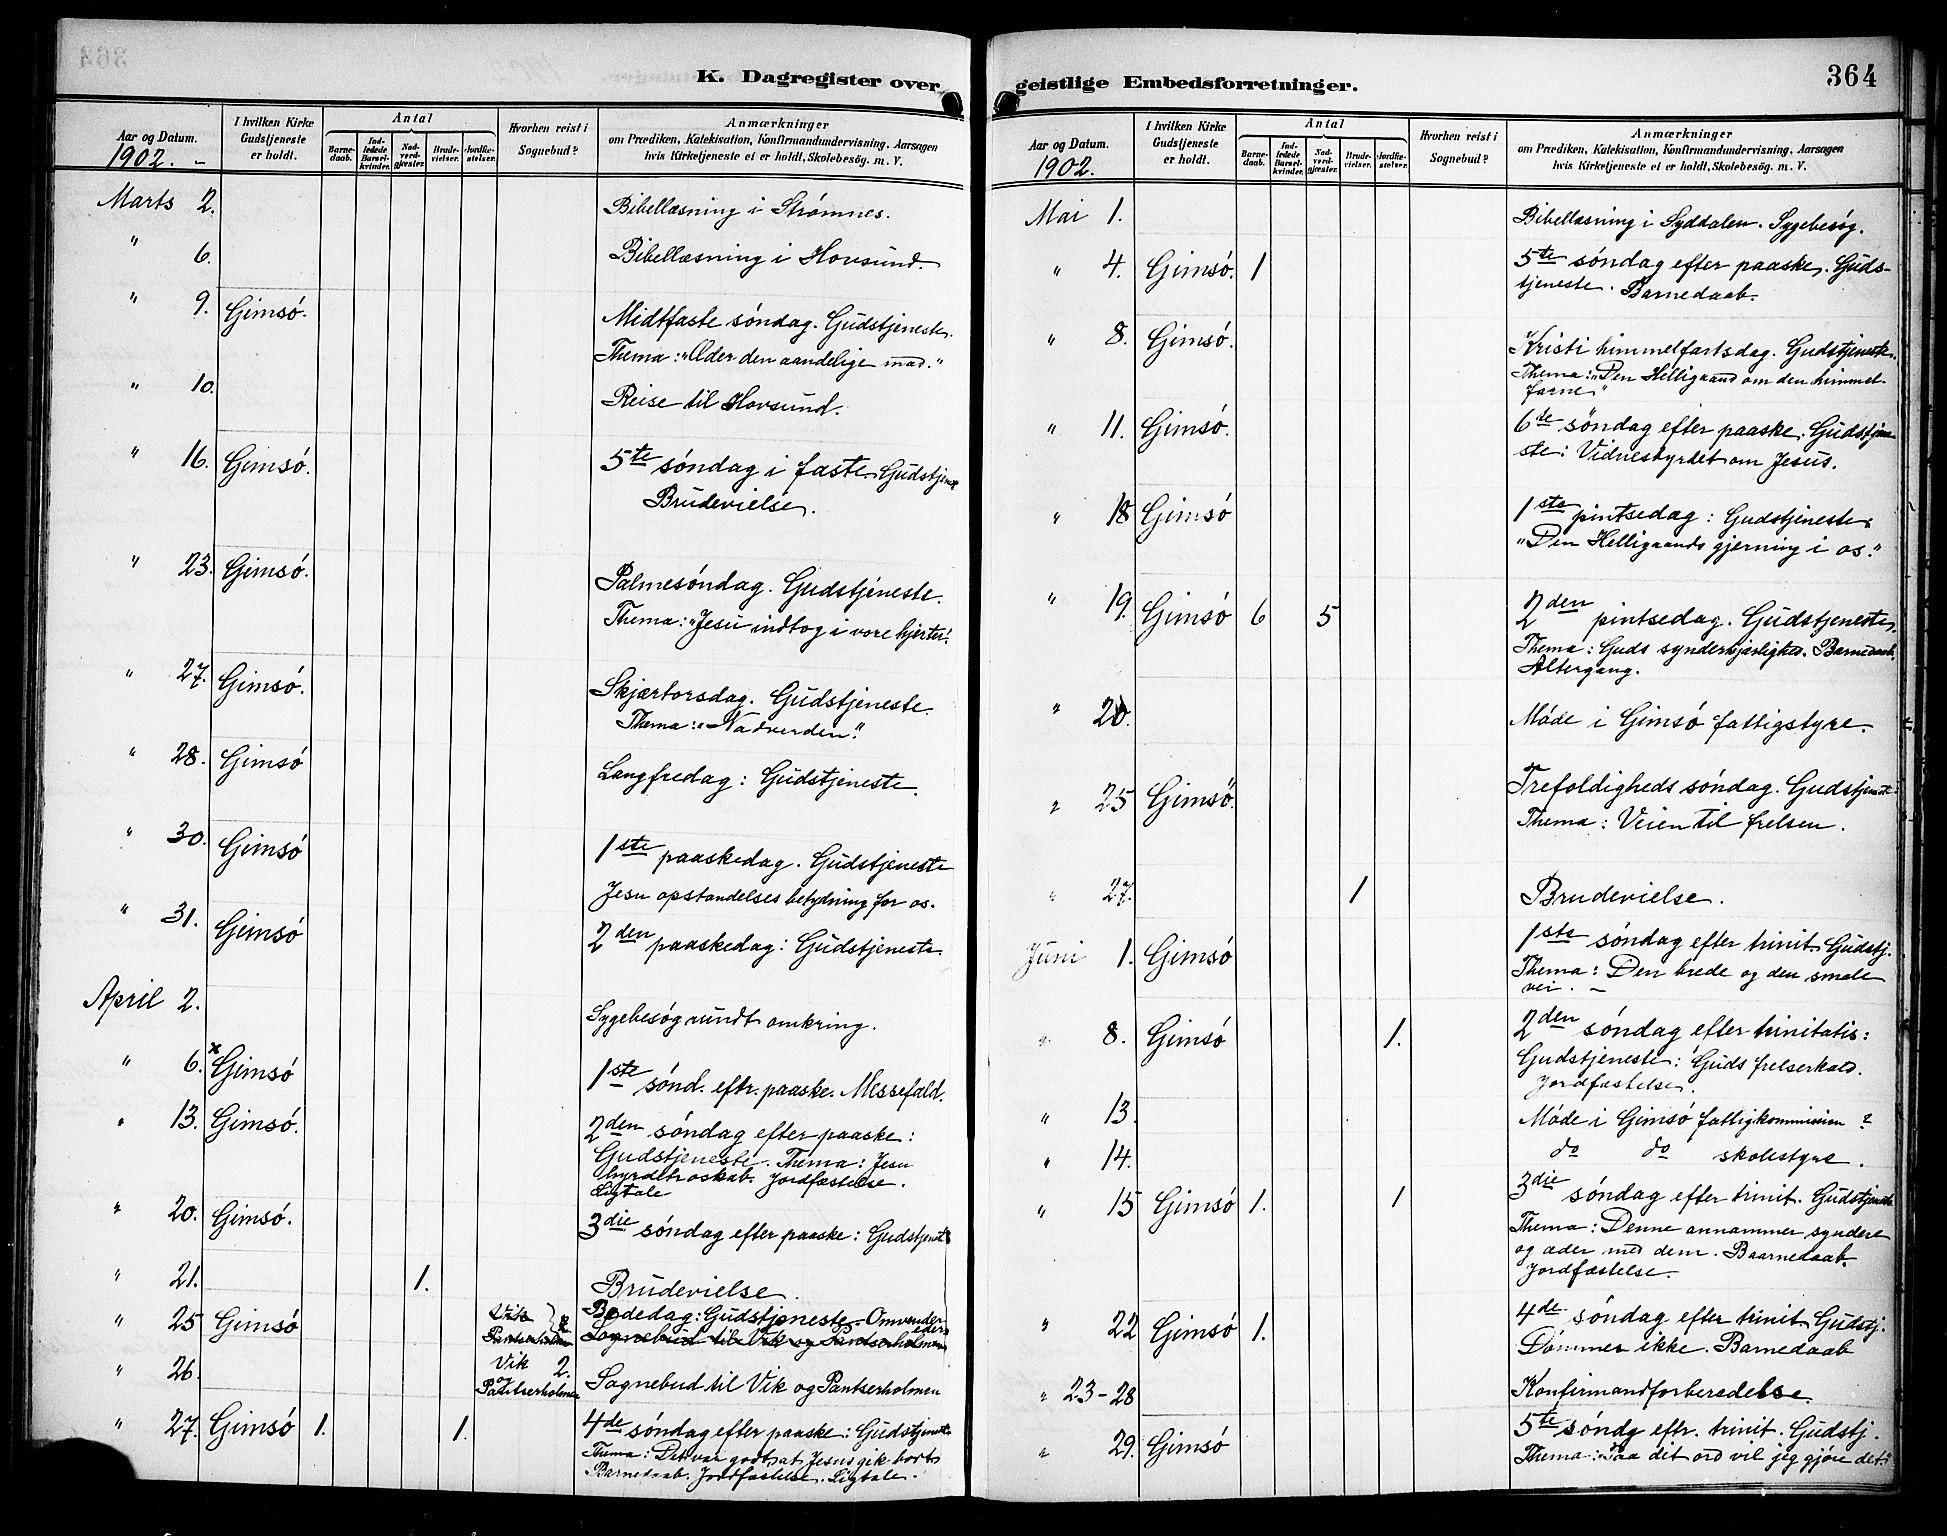 K. Dagregister over
Aar og Datum.
1902.
I hvilken Kirke Gudstjeneste er holdt.
Antal
Barnedaab.
Indledede Barselkvinder.
Nadverdgjæster.
Brudevielser.
Jordfæstelser.
Hvorhen reist i Sognebud?
Anmærkninger
om Prædiken, Katekisation, Konfirmandundervisning, Aarsagen
hvis Kirketjeneste ei er holdt, Skolebesøg. m. V.
Marts 2. Bibellæsning i Strømnes.
" 6. Bibellæsning i Hovsund.
" 9. Gimsó. Midtfaste søndag. Gudstjeneste.
Thema: "Æder den aandelige mad."
" 10. Reise til Hovsund.
" 16. Gimsó. 5te søndag i faste. Gudstjen
Brudevielse.
" 23. Gimsó. Palmesøndag. Gudstjeneste.
Thema: "Jesu indtog i vore hjerter."
" 27. Gimsó. Skjærtorsdag. Gudstjeneste.
Thema: "Nadverden."
" 28. Gimsó Langfredag: Gudstjeneste.
" 30. Gimsó 1ste paaskedag. Gudstjeneste
Jesu opstandelses betydning for os.
" 31. Gimsó 2den paaskedag: Gudstjeneste.
April 2. Sygebesøg rundt omkring.
" 6. x Gimsó 1ste sønd. eftr. paaske. Messefald.
" 13. Gimsó. 2den søndag efter paaske:
Gudstjeneste. Thema: Jesu
hyrdetroskab. Jordfæstelse.
Ligtale
" 20. Gimsó. 3die søndag efter paaske: Gudstjenst
" 21. 1. Brudevielse.
" 25 Gimsó Vik Bededag: Gudstjeneste. Omvender eder
Sognebud til Vik og Pantserholmen
" 26. Vik og Pantserholmen 2. Sognebud til Vik og Pantserholmen
" 27. Gimsó 1. 1. 4de søndag efter paaske: Gudstjenste
Thema: Det var godt at Jesus gik bort.
Barnedaab. Jordfæstelse. Ligtale.
geistlige Embedsforretninger.
364
Aar og Datum.
1902.
I hvilken Kirke Gudstjeneste er holdt.
Antal
Barnedaab.
Indledede Barselkvinder.
Nadverdgjæster.
Brudevielser.
Jordfæstelser.
Hvorhen reist i Sognebud?
Anmærkninger
om Prædiken, Katekisation, Konfirmandundervisning, Aarsagen
hvis Kirketjeneste ei er holdt, Skolebesøg. m. V.
Mai 1. Bibellæsning i Syddalen. Sygebesøg.
" 4. Gimsó. 1 5te søndag efter paaske. Guds-
tjeneste. Barnedaab.
" 8. Gimsó. Kristi himmelfartsdag. Gudstjeneste.
Thema: "Den Helligaand om den himmel-
farne"
" 11. Gimsó. 6te søndag efter paaske: Gudstjene-
ste: Vidnesbyrdet om Jesus.
" 18 Gimsó 1ste pintsedag: Gudstjeneste:
"Den Helligaands gjerning i os."
" 19. Gimsó 6 5 2den pintsedag. Gudstjeneste.
Thema: Guds synderkjærlighed. Barnedaab.
Altergang.
" 20. Møde i Gimsó fattigstyre.
" 25 Gimsó. Trefoldigheds søndag. Gudstjenste:
Thema: Veien til frelsen.
" 27. 1 Brudevielse.
Juni 1. Gimsó 1ste søndag efter trinit. Gudstj.
Thema: Den brede og den smale
vei. -
" 8. Gimsó 1. 2den søndag efter trinitatis:
Gudstjeneste: Guds frelserkald.
Jordfæstelse.
" 13. Møde i Gimsó fattigkommission
" 14. do do skolestyre.
" 15 Gimsó 1. 1 3die søndag efter trinit. Gudstjenste
Thema: Denne annammer syndere
og æder med dem. Baarnedaab.
Jordfæstelse.
" 22 Gimsó 1. 4de søndag efter trinit. Gudstj.
Dømmer ikke. Barnedaab
" 23-28 Konfirmandforberedelse.
" 29. Gimsó 5te søndg eftr. trinit. Gudstj.
Thema: "Paa dit ord vil jeg gjøre det."